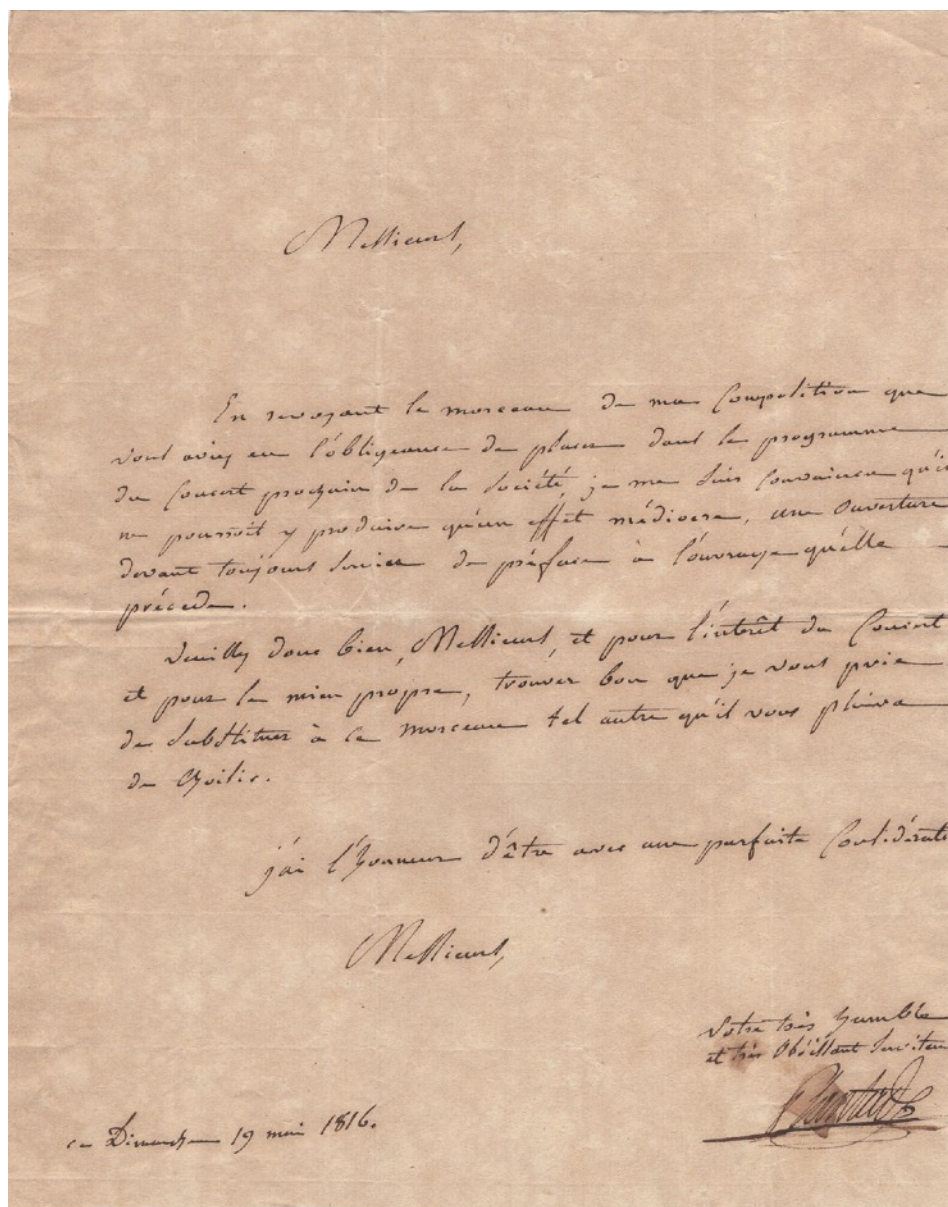 Messieurs,
En revoyant le morceau de ma Composition que
vous aviez eu l'obligeance de placer dans le programme
du Concert prochain de la Société, je me suis Convaincu qu'il
ne pourroit y produire qu'un effet médiocre, une Ouverture
devant toujours servir de préface à l'ouvrage qu'elle
précede.
Veuillez donc bien, Messieurs, et pour l'intérêt du Concert
et pour le mien propre, trouver bon que je vous prie
de substituer à ce morceau tel autre qu'il vous plaira
de choisir.
j'ai l'honneur d'être avec une parfaite Considérati
Messieurs,
votre très humble
et très Obéissant serviteur
ce Dimanche 19 mai 1816.